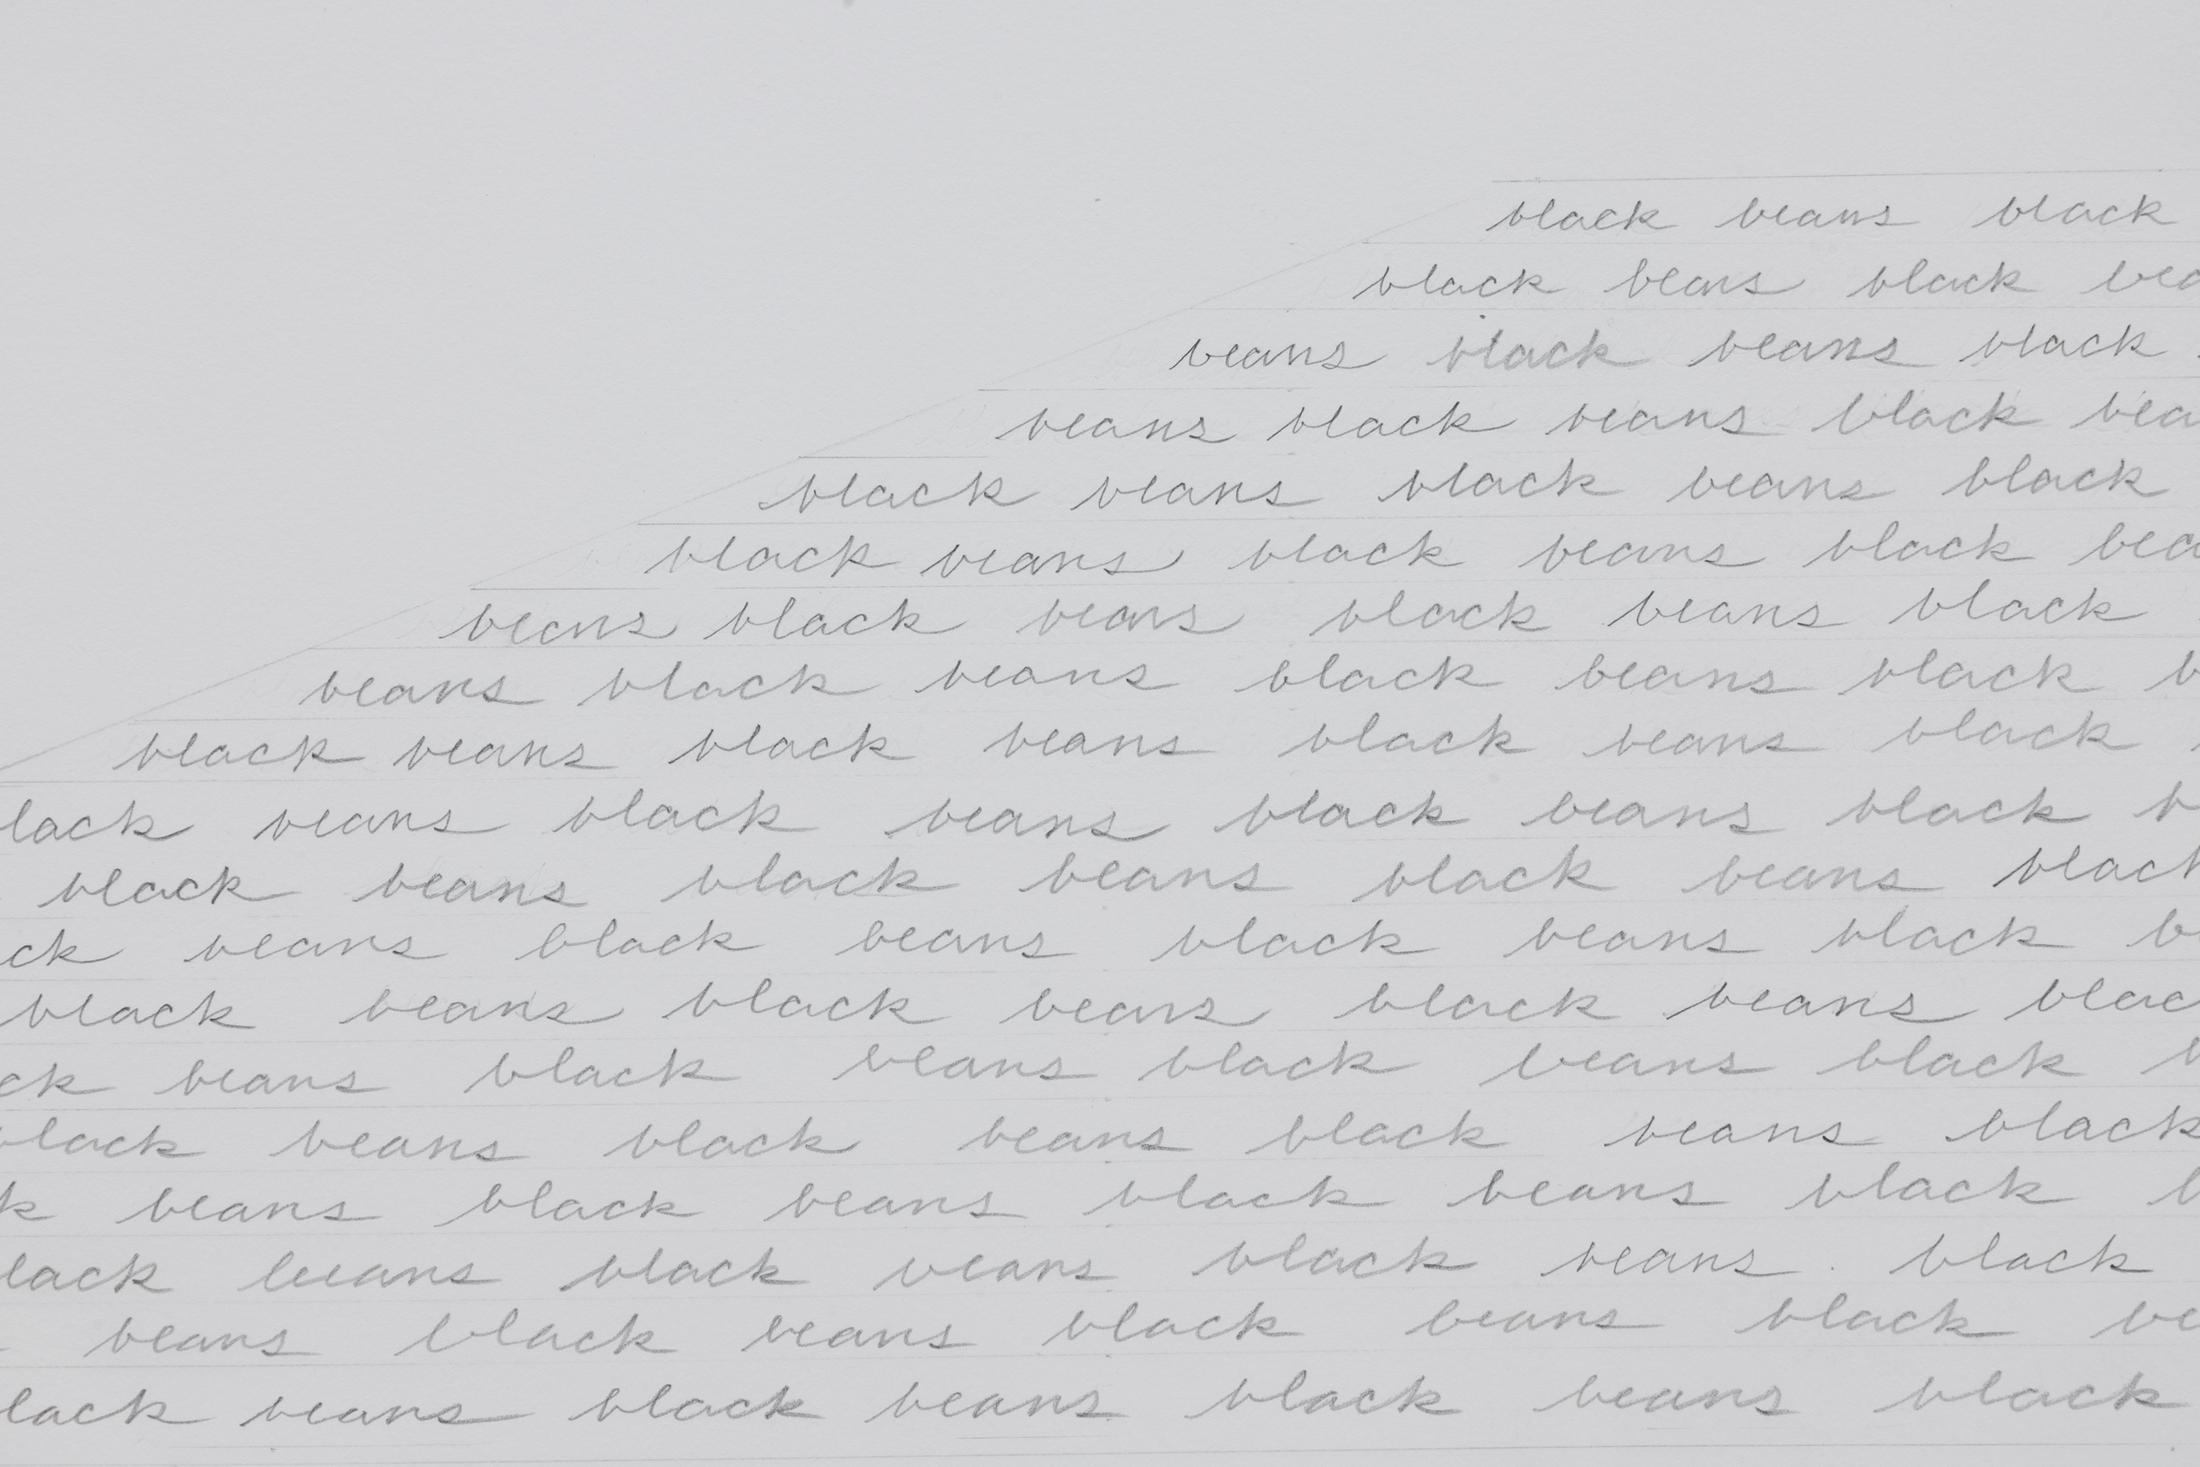 black beans black
black beans black bea
beans black beans black
beans black beans black bea
black beans black beans black
black beans black beans black bea
beans black beans black beans black
beans black beans black beans black b
black beans black beans black beans black
lack beans black beans black beans black b
black beans black beans black beans black
ck beans black beans black beans black b
black beans black beans black beans blac
ck beans black beans black beans black b
black beans black beans black beans black
k beans black beans black beans black b
lack beans black beans black beans black
beans black beans black beans black be
lack beans black beans black beans black